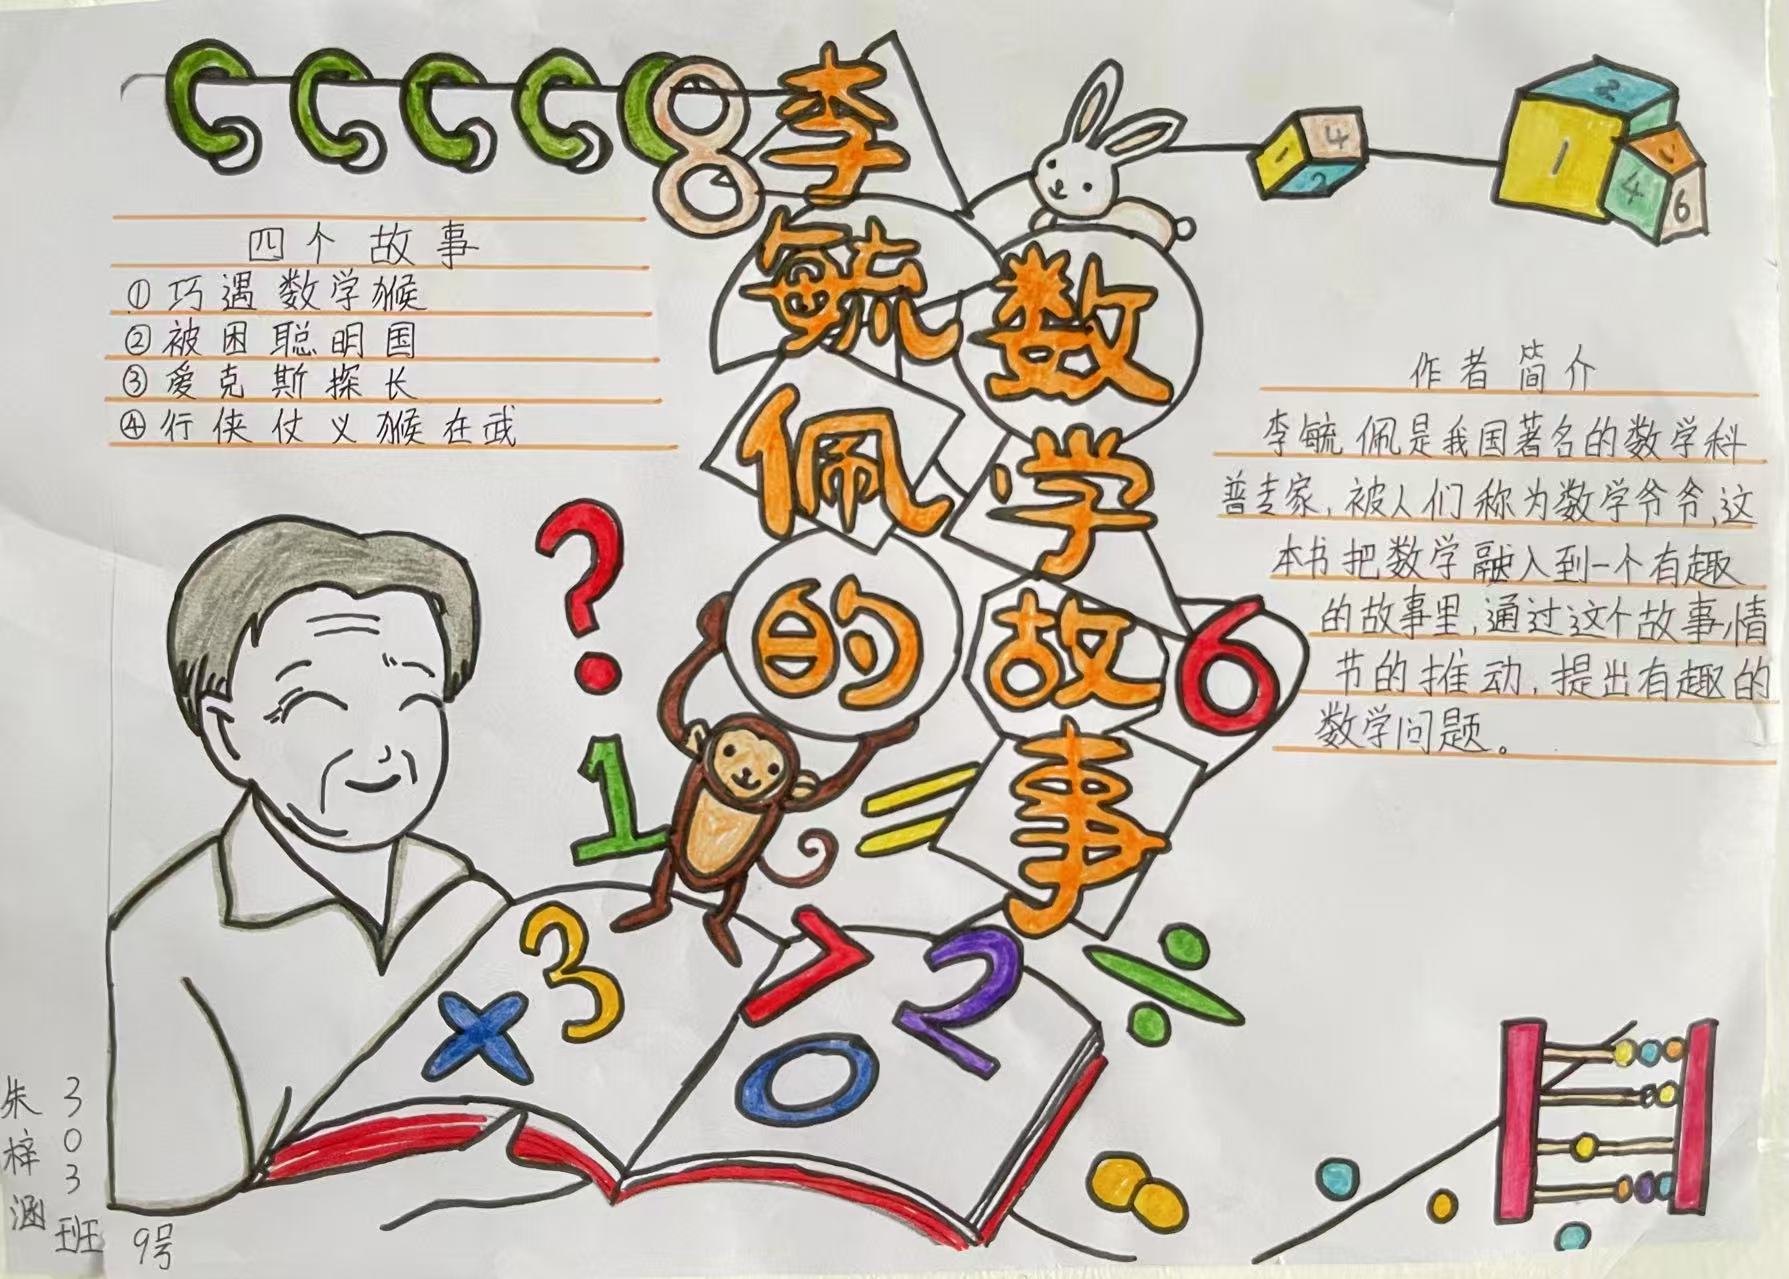 李毓佩的
数学故事
8
4
1
2
2
1
4
6
四个故事
①巧遇数学猴
②被困聪明国
③爱克斯探长
④行侠仗义猴在武
作者简介
李毓佩是我国著名的数学科
普专家,被人们称为数学爷爷,这
本书把数学融入到一个有趣
的故事里,通过这个故事情
节的推动,提出有趣的
数学问题。
?
6
1
=
3
×
7
2
0
÷
朱梓涵
303班
9号